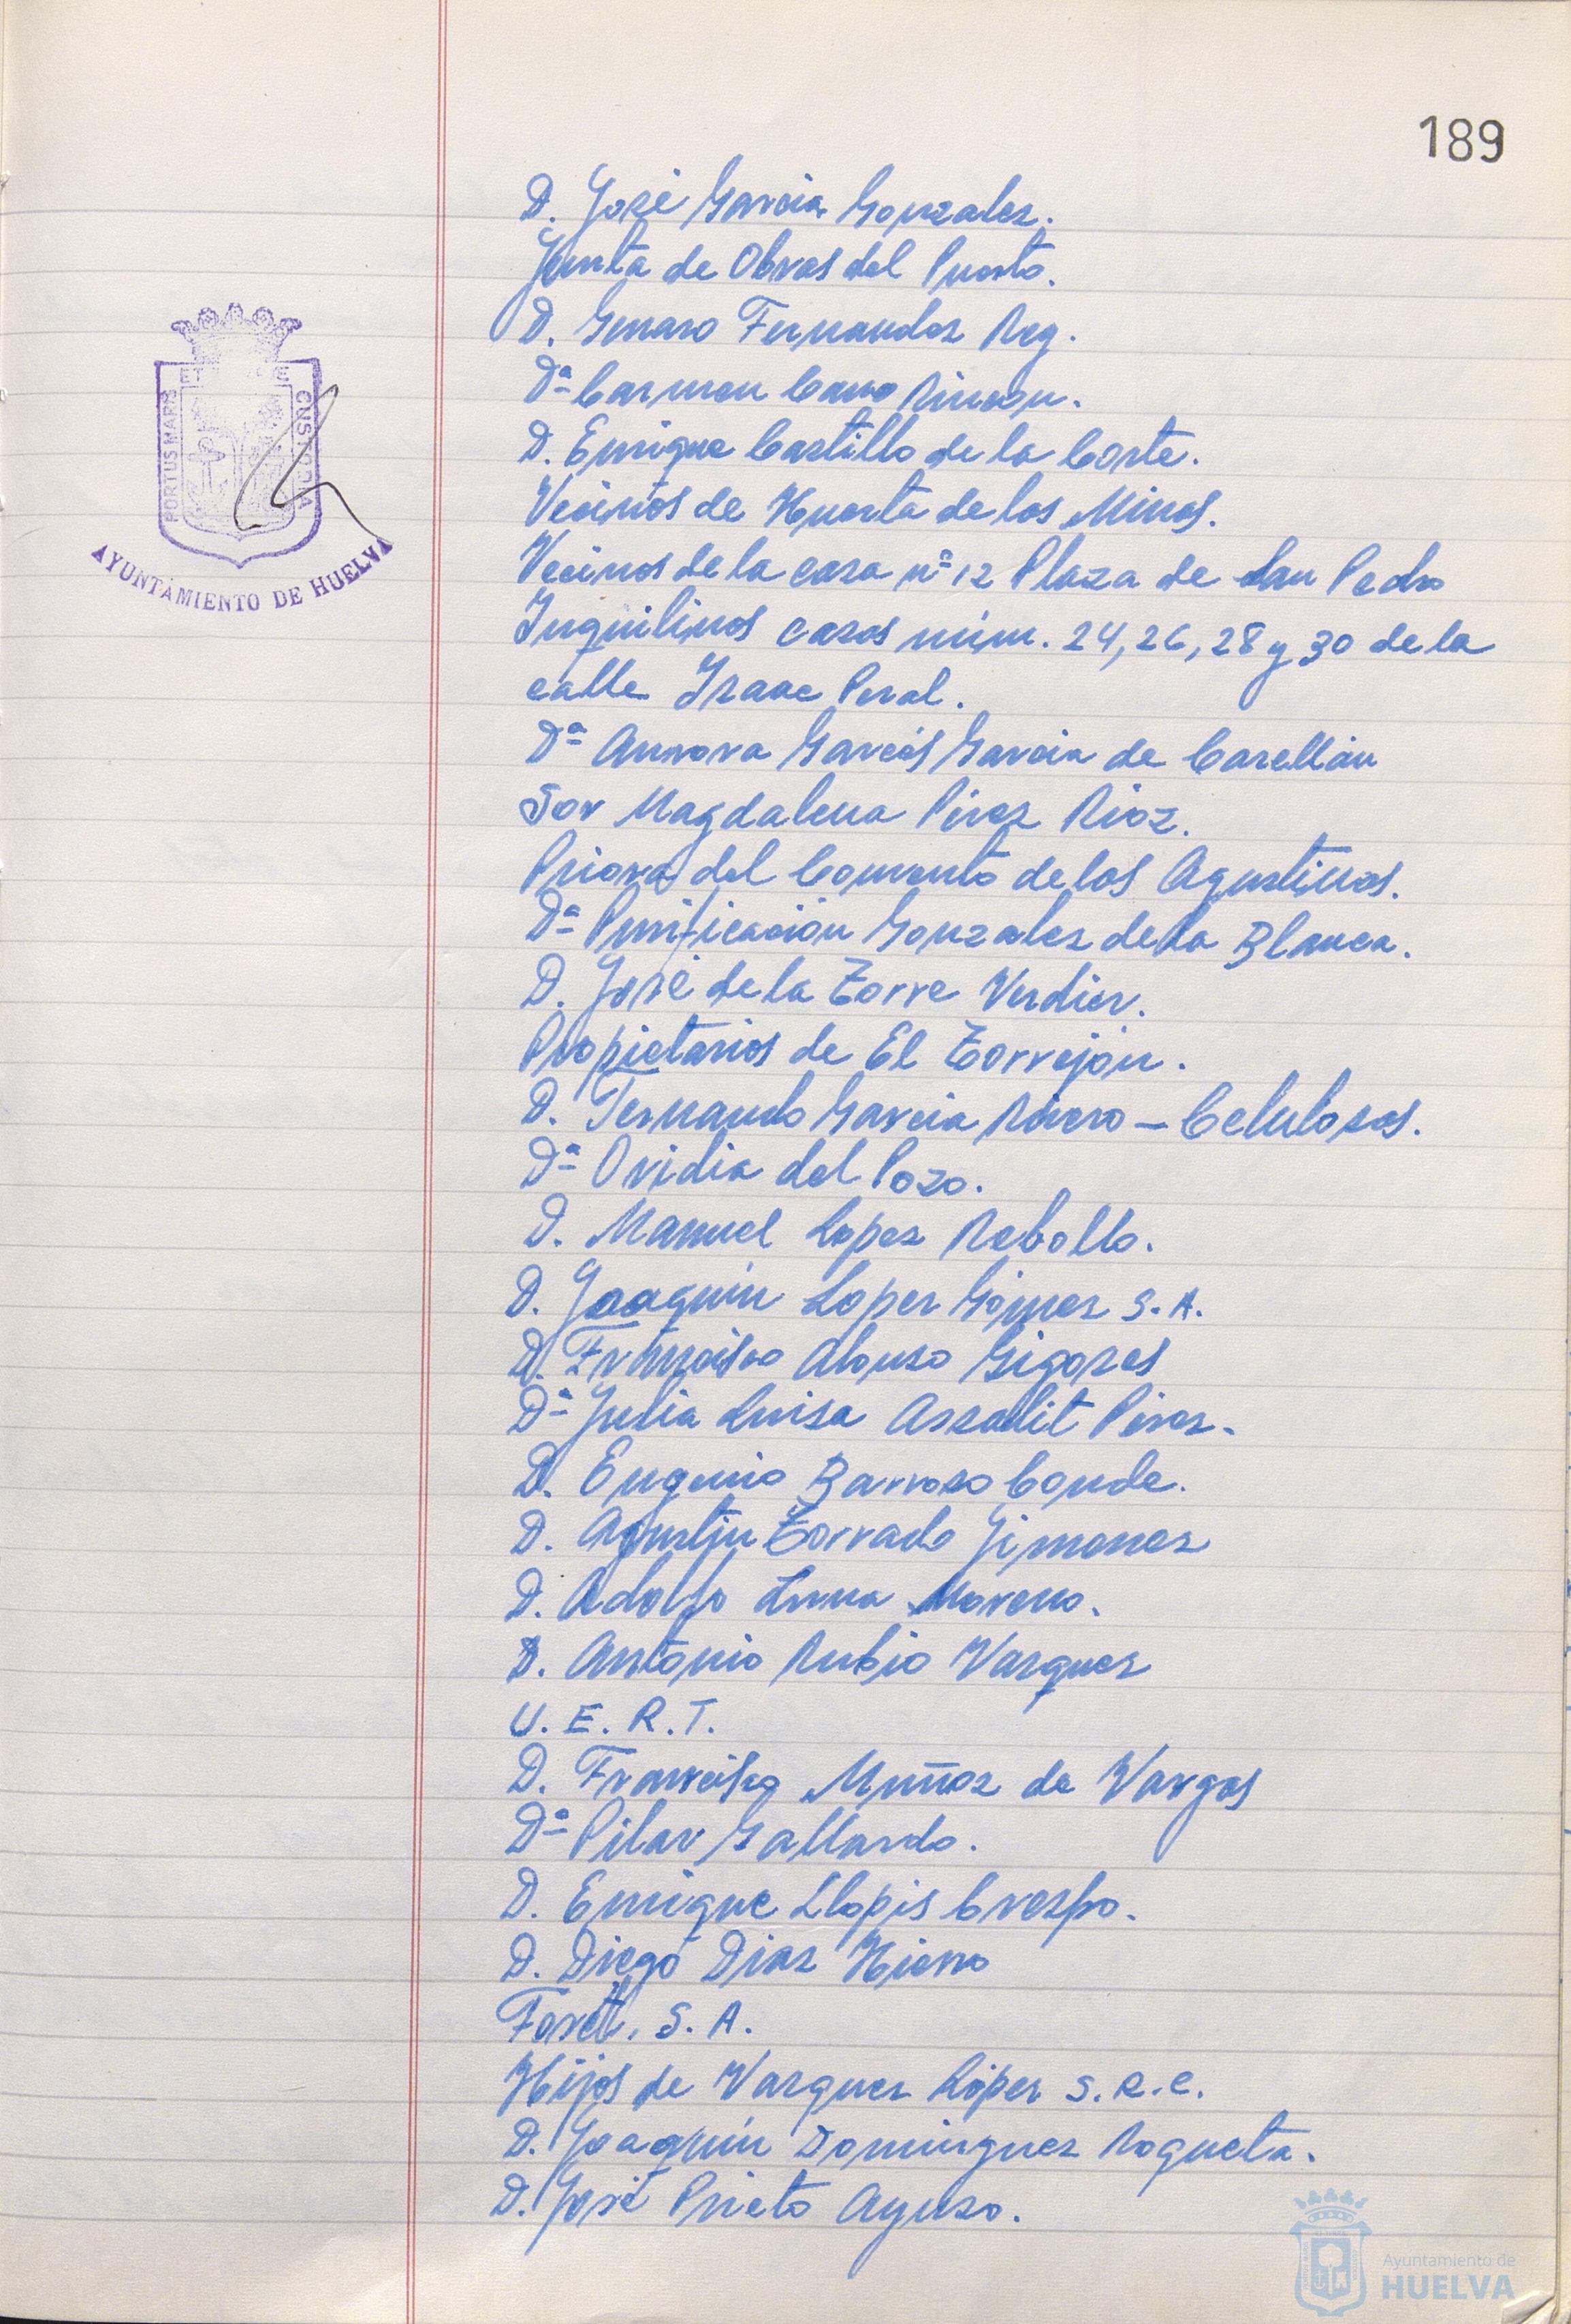 189
D. José Garcia Gonzalez.
Junta de Obras del Puerto.
D. Genaro Fernandez Rey.
Dª Carmen Cano Rincon.
D. Enrique Castillo de la Corte.
Vecinos de Huerta de las Minas.
Vecinos de la casa nº 12 Plaza de San Pedro
Inquilinos casas núm. 24, 26, 28 y 30 de la
calle Isaac Peral.
Dª Aurora Garcés Garcia de Casellán
Sor Magdalena Pérez Rioz.
Priora del Convento de las Agustinas.
Dª Purificación Gonzalez de la Blanca.
D. José de la Torre Verdier.
Propietarios de El Torrejón.
D. Fernando Garcia Rivero - Celulosas.
Dª Ovidia del Pozo.
D. Manuel Lopez Rebollo.
D. Joaquín Lopez Gómez S. A.
D. Francisco Alonso Gigozos
Dª Julia Luisa Assalit Pérez.
D. Eugenio Barroso Conde.
D. Agustin Torrado Jimenez
D. Adolfo Luna Moreno.
D. Antonio Rubio Vazquez
U. E. R. T.
D. Francisco Muñoz de Vargas
Dª Pilar Gallardo.
D. Enrique Llopis Crespo.
D. Diego Diaz Hierro
Foret, S. A.
Hijos de Vazquez López S. R. C.
D. Joaquín Dominguez Roqueta.
D. José Prieto Ayuso.
PORTUS MARIS ET CUSTODIA
AYUNTAMIENTO DE HUELVA
Ayuntamiento de
HUELVA